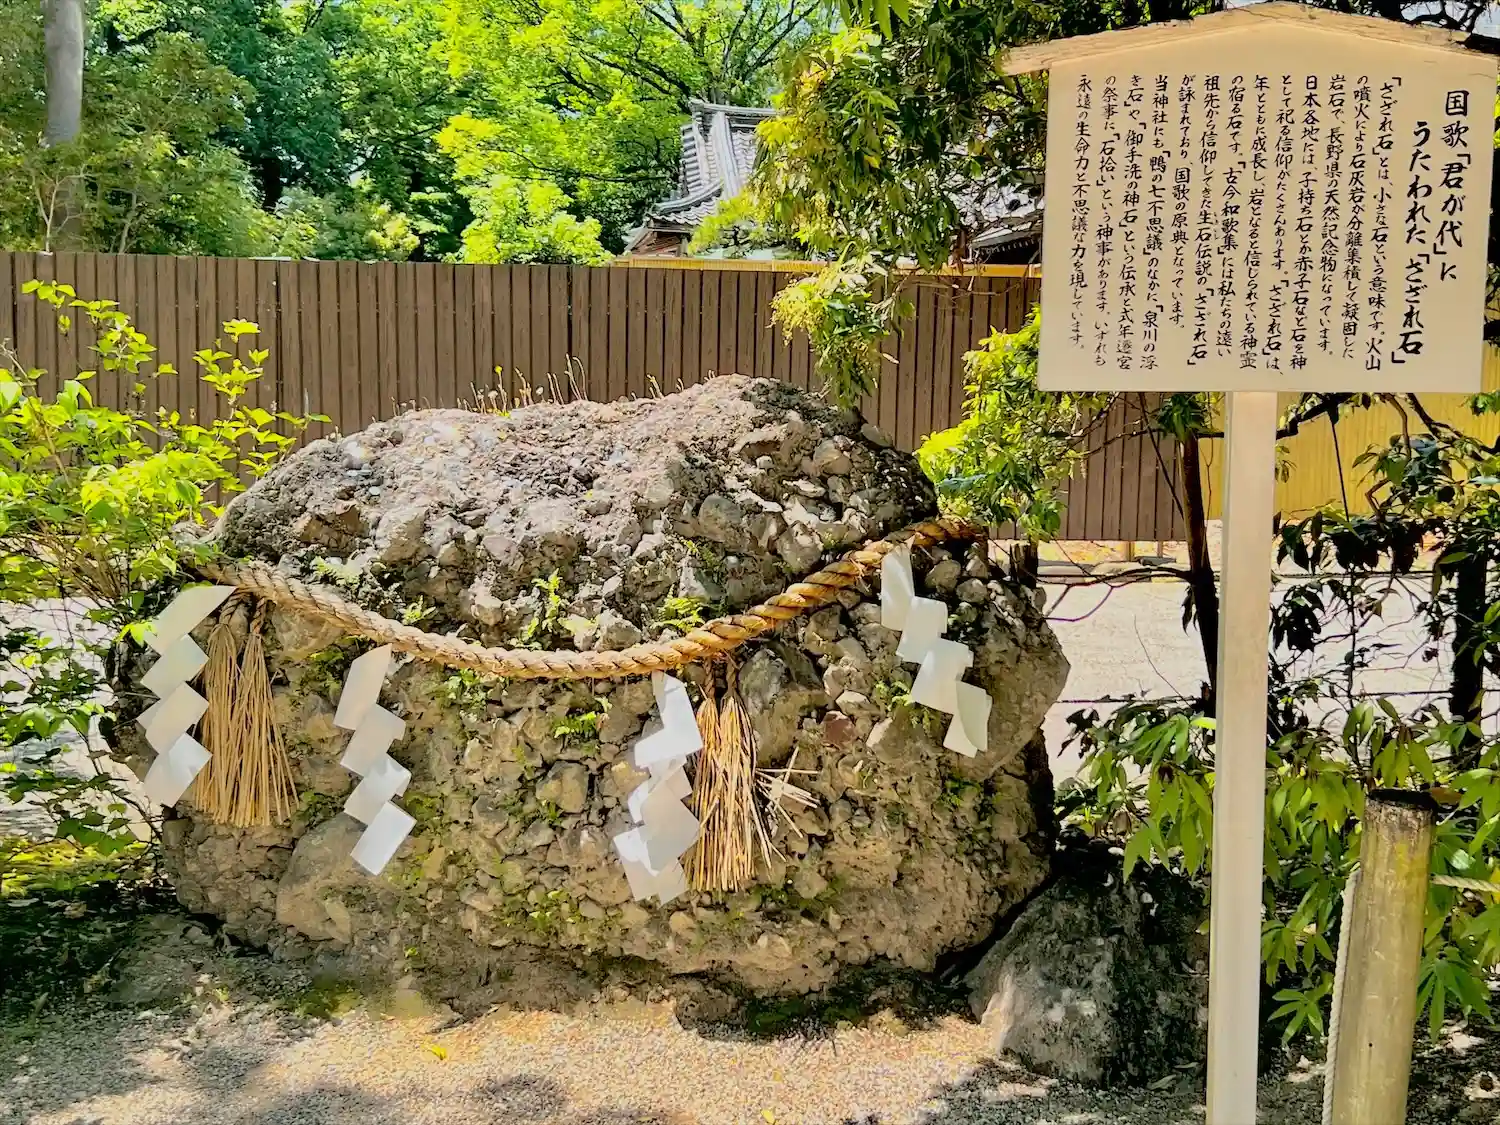 国歌「君が代」に
うたわれた「さざれ石」
「さざれ石」とは、小さな石という意味です。火山
の噴火により石灰岩が分離集積して凝固した
岩石で、長野県の天然記念物になっています。
日本各地には、子持ち石とか赤子石など石を神
として祀る信仰がたくさんあります。「さざれ石」は、
年とともに成長し、岩となると信じられている神霊
の宿る石です。「古今和歌集」には私たちの遠い
祖先から信仰してきた生石伝説の「さざれ石」
が詠まれており、国歌の原典となっています。
当神社にも、「鴨の七不思議」のなかに、「泉川の浮
き石」や、「御手洗の神石」という伝承と式年遷宮
の祭事に、「石拾い」という神事があります。いずれも
永遠の生命力と不思議な力を現しています。